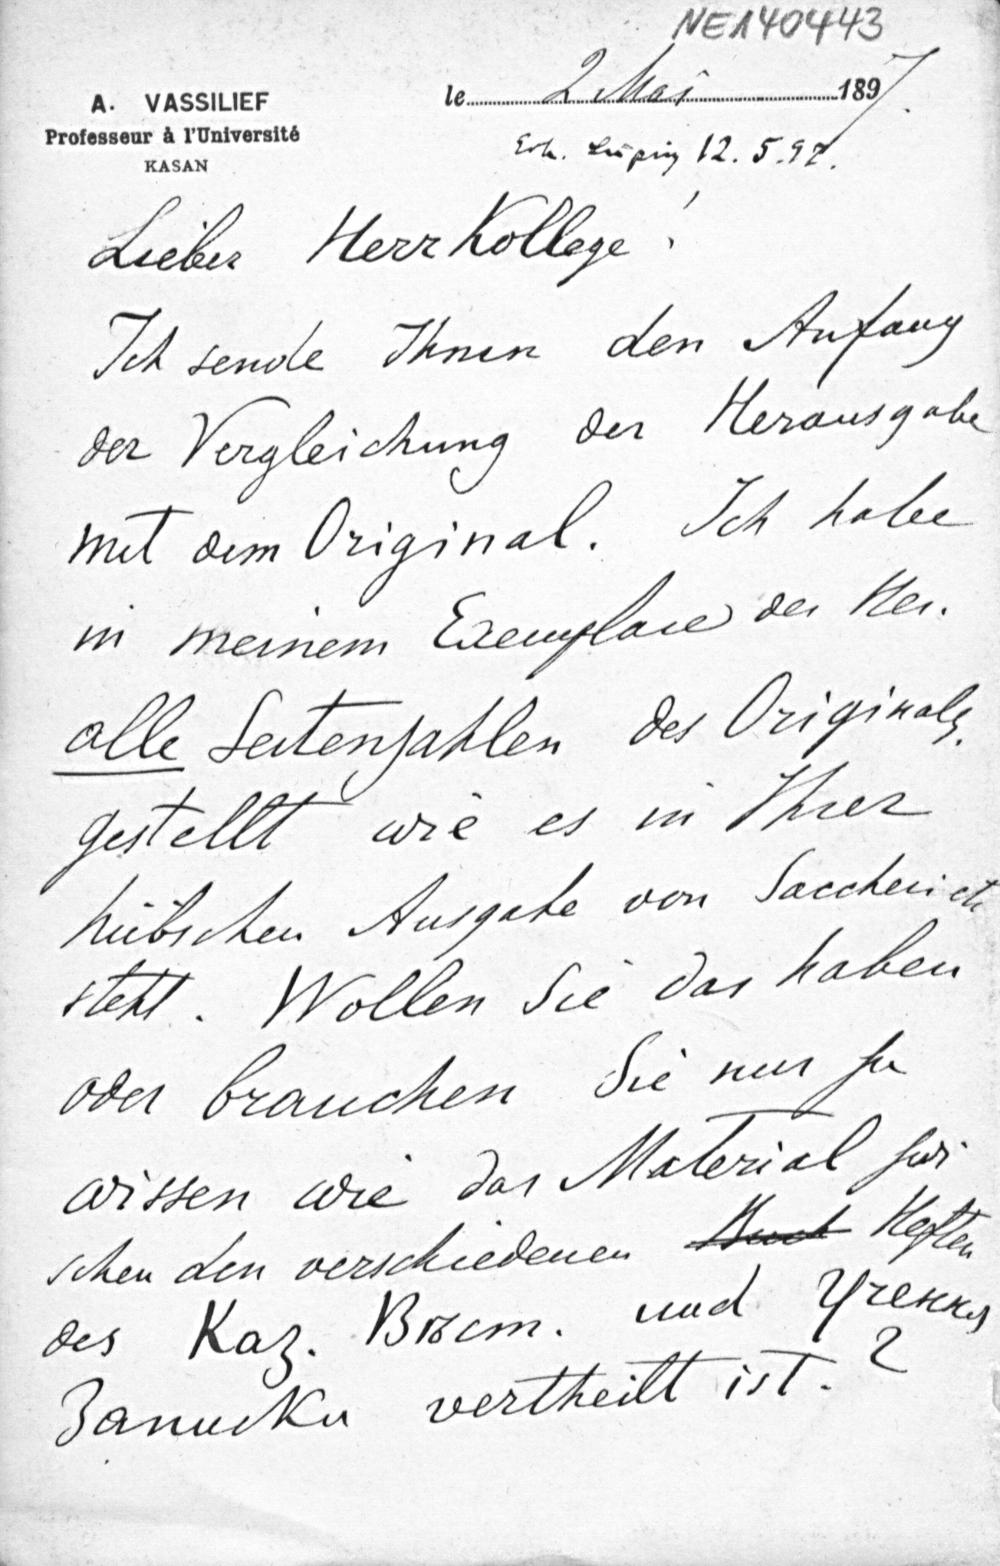 NE140443
le 2 Mai 1897.
A. VASSILIEF
Professeur à l'Université
KASAN
Erh. Leipzig 12. 5. 97.
Lieber Herr Kollege!
Ich sende Ihnen den Anfang
der Vergleichung der Herausgabe
mit dem Original. Ich habe
in meinem Exemplare der Her.
alle Seitenzahlen des Originals
gestellt wie es in Ihrer
hübschen Ausgabe von Saccheri etc
steht. Wollen Sie das haben
oder brauchen Sie nur zu
wissen wie das Material zwi
schen den verschiedenen Heften
des Каз. Вѣст. und Ученыя
Записки vertheilt ist.?